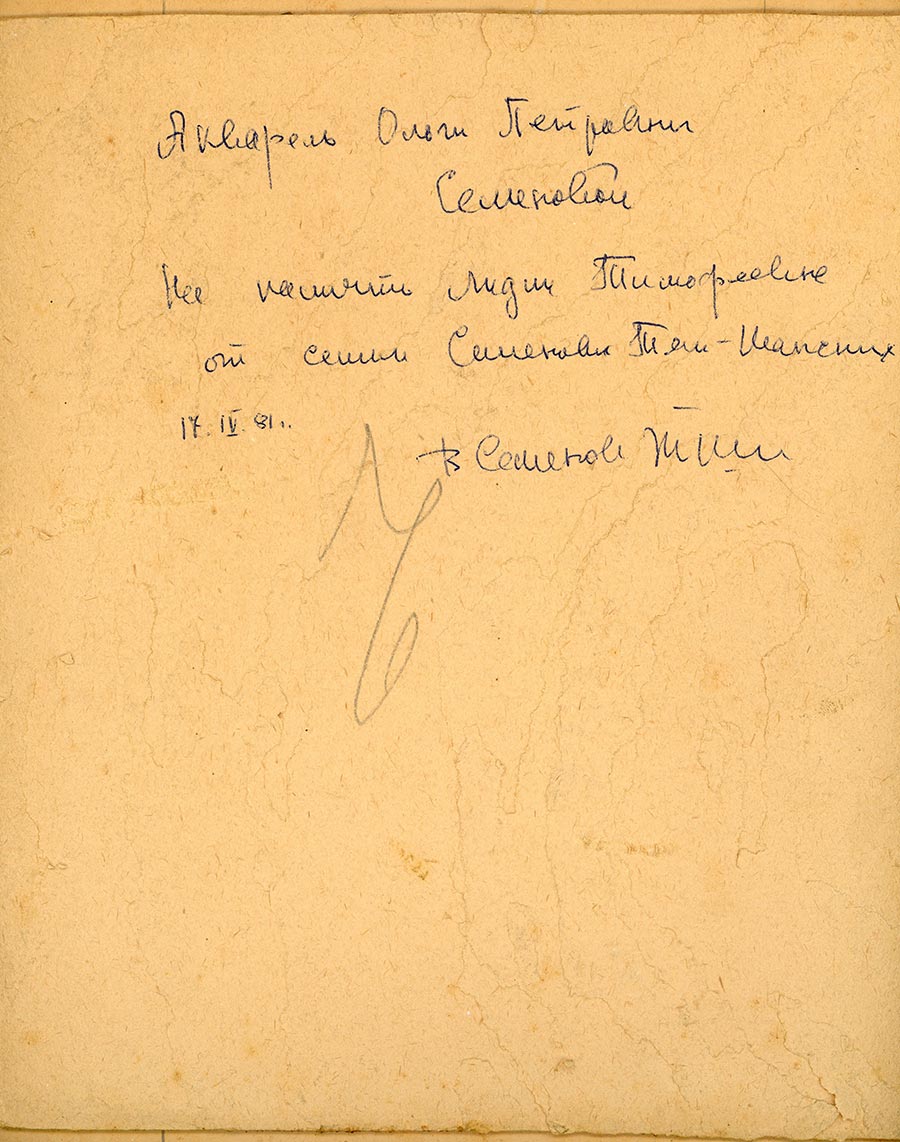 Акварель Ольги Петровны
Семеновой
На память Лидии Тимофеевне
от семьи Семеновых Тян-Шанских
17. IV. 81г.
В Семенов ТШ